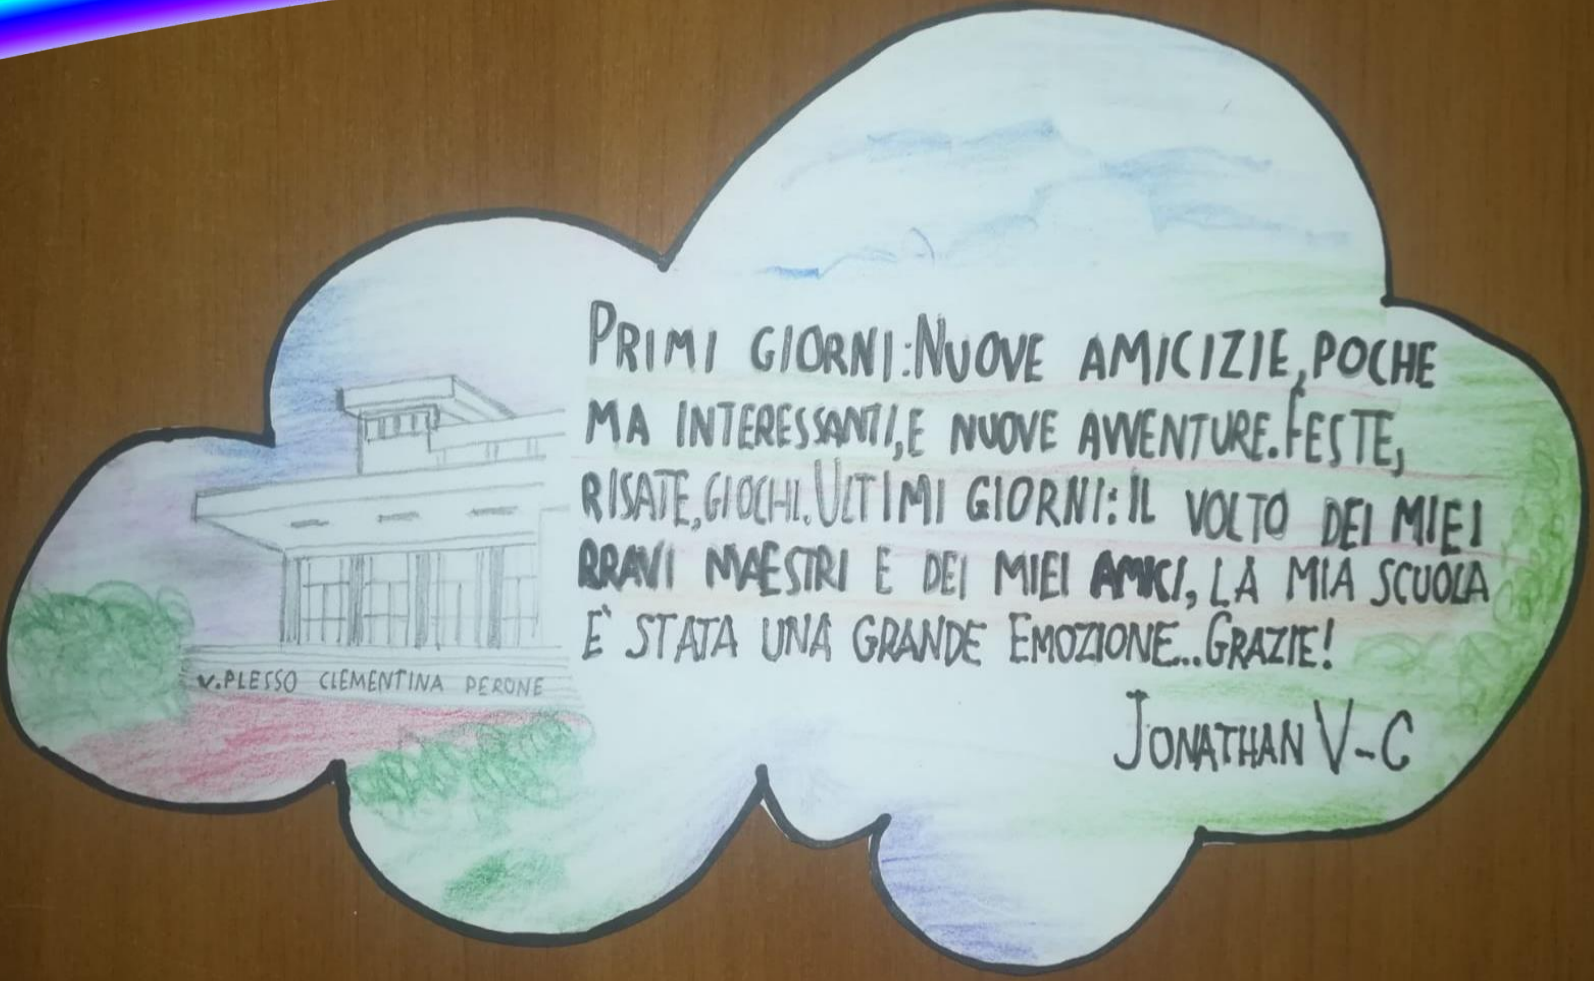 PRIMI GIORNI: NUOVE AMICIZIE, POCHE
MA INTERESSANTI, E NUOVE AVVENTURE. FESTE,
RISATE, GIOCHI. ULTIMI GIORNI: IL VOLTO DEI MIEI
BRAVI MAESTRI E DEI MIEI AMICI, LA MIA SCUOLA
E' STATA UNA GRANDE EMOZIONE... GRAZIE!
JONATHAN V-C
V. PLESSO CLEMENTINA PERONE